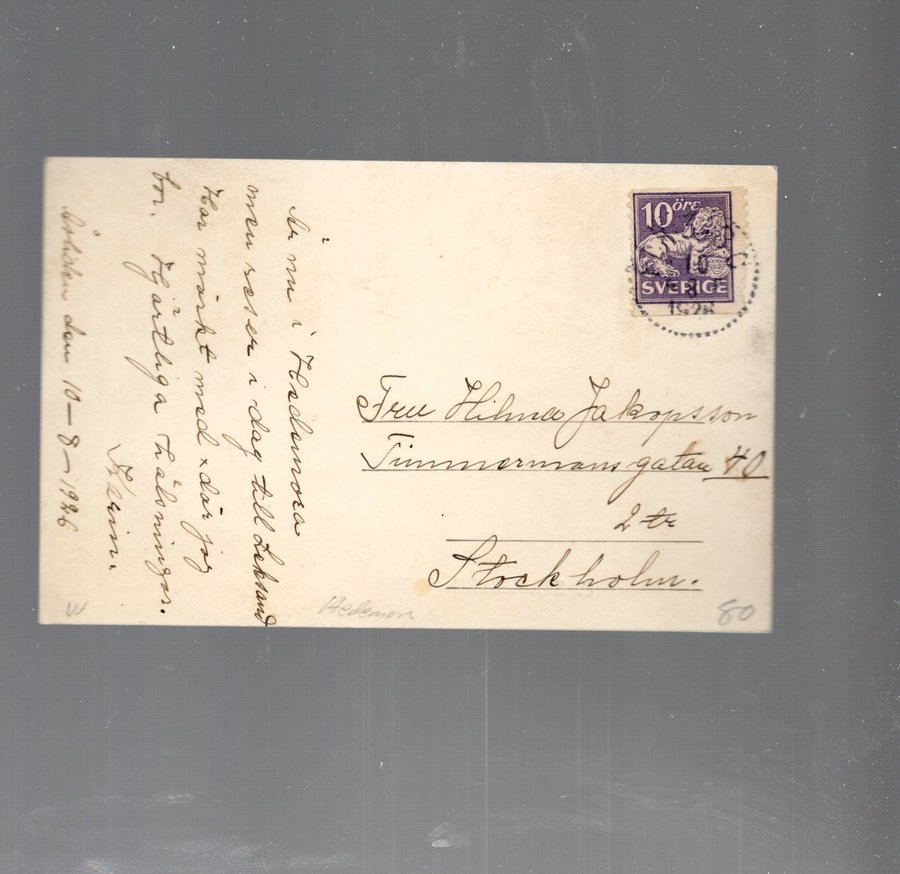 Är nu i Hedemora
men reser i dag till Leksand
Har märkt med x där jag
bor. Hjärtliga hälsningar.
Karin.
den 10-8-1926
10 öre
SVERIGE
10
8
1926
Fru Hilma Jakopsson
Timmermansgatan 40
2 tr
Stockholm.
Hedemora
80